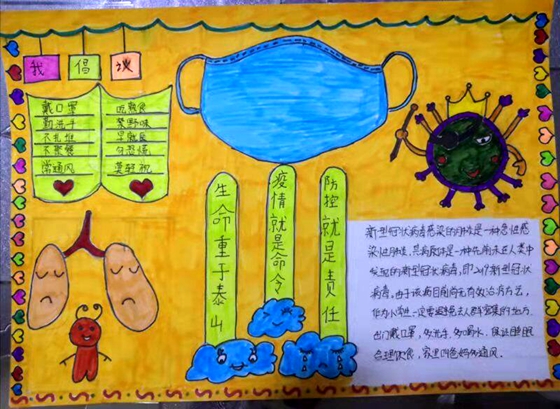 我倡议
戴口罩
勤洗手
不扎堆
不聚餐
常通风
吃熟食
禁野味
早就医
勿恐慌
莫轻视
生命重于泰山
疫情就是命令
防控就是责任
新型冠状病毒感染的肺炎是一种急性感
染性肺炎，其病原体是一种先前未在人类中
发现的新型冠状病毒，即2019新型冠状
病毒。由于该病目前尚无有效治疗方法，
作为小学生一定要避免去人群密集的地方，
出门戴口罩，多洗手，多喝水，保证睡眠
合理饮食，家里叫爸妈多通风。